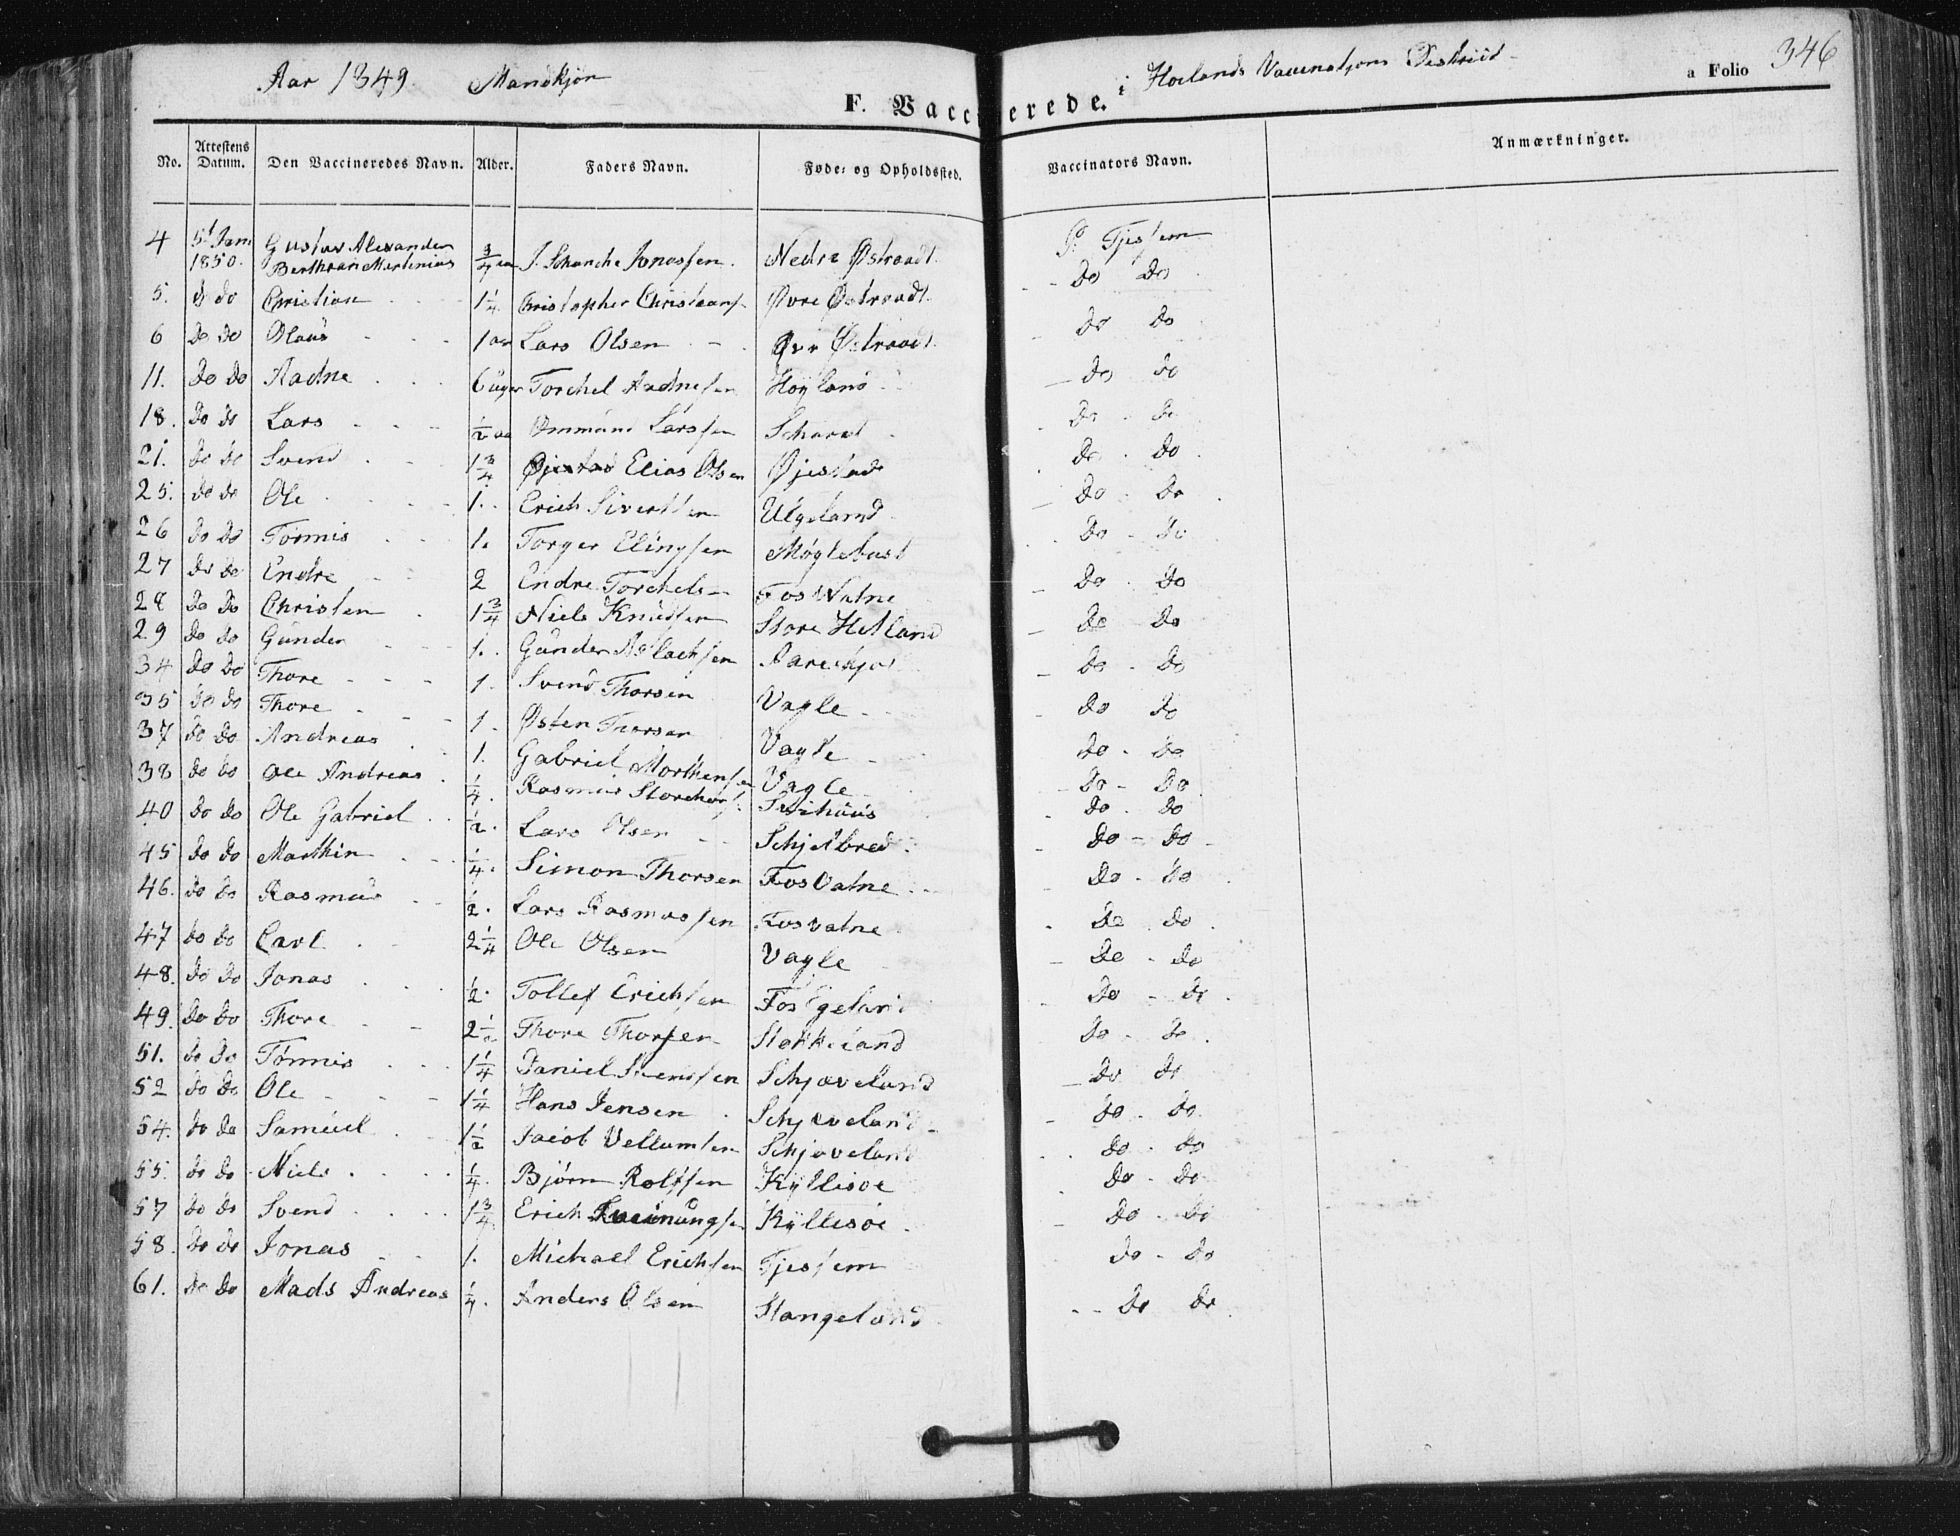 Aar 1849. Mandkjøn i Hoilands Vaccinations Distrikt a Folio 346
F. Vaccinerede.
No. Attestens Datum. Den Vaccineredes Navn. Alder. Faders Navn. Føde- og Opholdssted. Vaccinators Navn. Anmærkninger.
4 5t Jan 1850. Gustav Alexander Berthran Martinius 3/4 aar J. Schanche Jonassen. Nedre Østraadt P. Tjessem
5. d do Christian 1 1/4. Christopher Christians Øvre Østraadt Do Do
6 Do Do Olaus 1 aar Lars Olsen Øvr Østraadt Do Do
11. Do Do Aadne 6 uger Torchel Aadnessen Hoyland Do Do
18. Do Do Lars 1/2 aar Ommund Larssen Do Do
21. Do Do Svend 1 3/4 Elias Olsen Øjestad Do Do
25. Do Do Ole 1. Erich Sivertsen Uelgeland Do Do
26 Do Do Tormis 1. Torger Elingsen Møglebust Do Do
27 Do Do Endre 2 Endre Torchels Fos Vatne Do Do
28 Do Do Christen 1 3/4 Niels Knudsen Store Hetland Do Do
29 Do Do Gunder 1. Gunder Aslachsen Do Do
34 Do Do Thore 1. Svend Thorsen Vagle Do Do
35 Do Do Thore 1. Østen Thorsen Vagle Do Do
37 Do Do Andreas 1. Gabriel Morthensen Vagle Do Do
38 Do Do Ole Andreas 1/4. Rasmus Storchers. Do Do
40 Do Do Ole Gabriel 1/2. Lars Olsen Schjelbred. Do Do
45 Do Do Marthin 1/4. Simon Thorsen Fos Vatne Do Do
46. Do Do Rasmus 1/2. Lars Rasmussen Fosvatne Do Do
47 Do Do Carl 2 1/4 Ole Olsen Vagle Do Do
48. Do Do Jonas 1/2. Tollef Erichsen Fos Egeland Do Do
49. Do Do Thore 2 1/2 Thore Thorsen Stokkeland Do Do
51. Do Do Tønnis 1 1/4 Daniel Svendsen Schjæveland Do Do
52 Do Do Ole 1 1/4 Hans Jensen Schjæveland Do Do
54. Do Do Samuel 1 1/2 Jacob Vellumsen Schjæveland Do Do
55. Do Do Niels 1/4. Bjørn Rolfsen Kyllisøe Do Do
57 Do Do Svend 1 3/4 Erich Kyllisøe Do Do
58. Do Do Jonas 1. Michael Erichsen Tjessem Do Do
61. Do Do Mads Andreas 1/4. Anders Olsen Stangeland Do Do